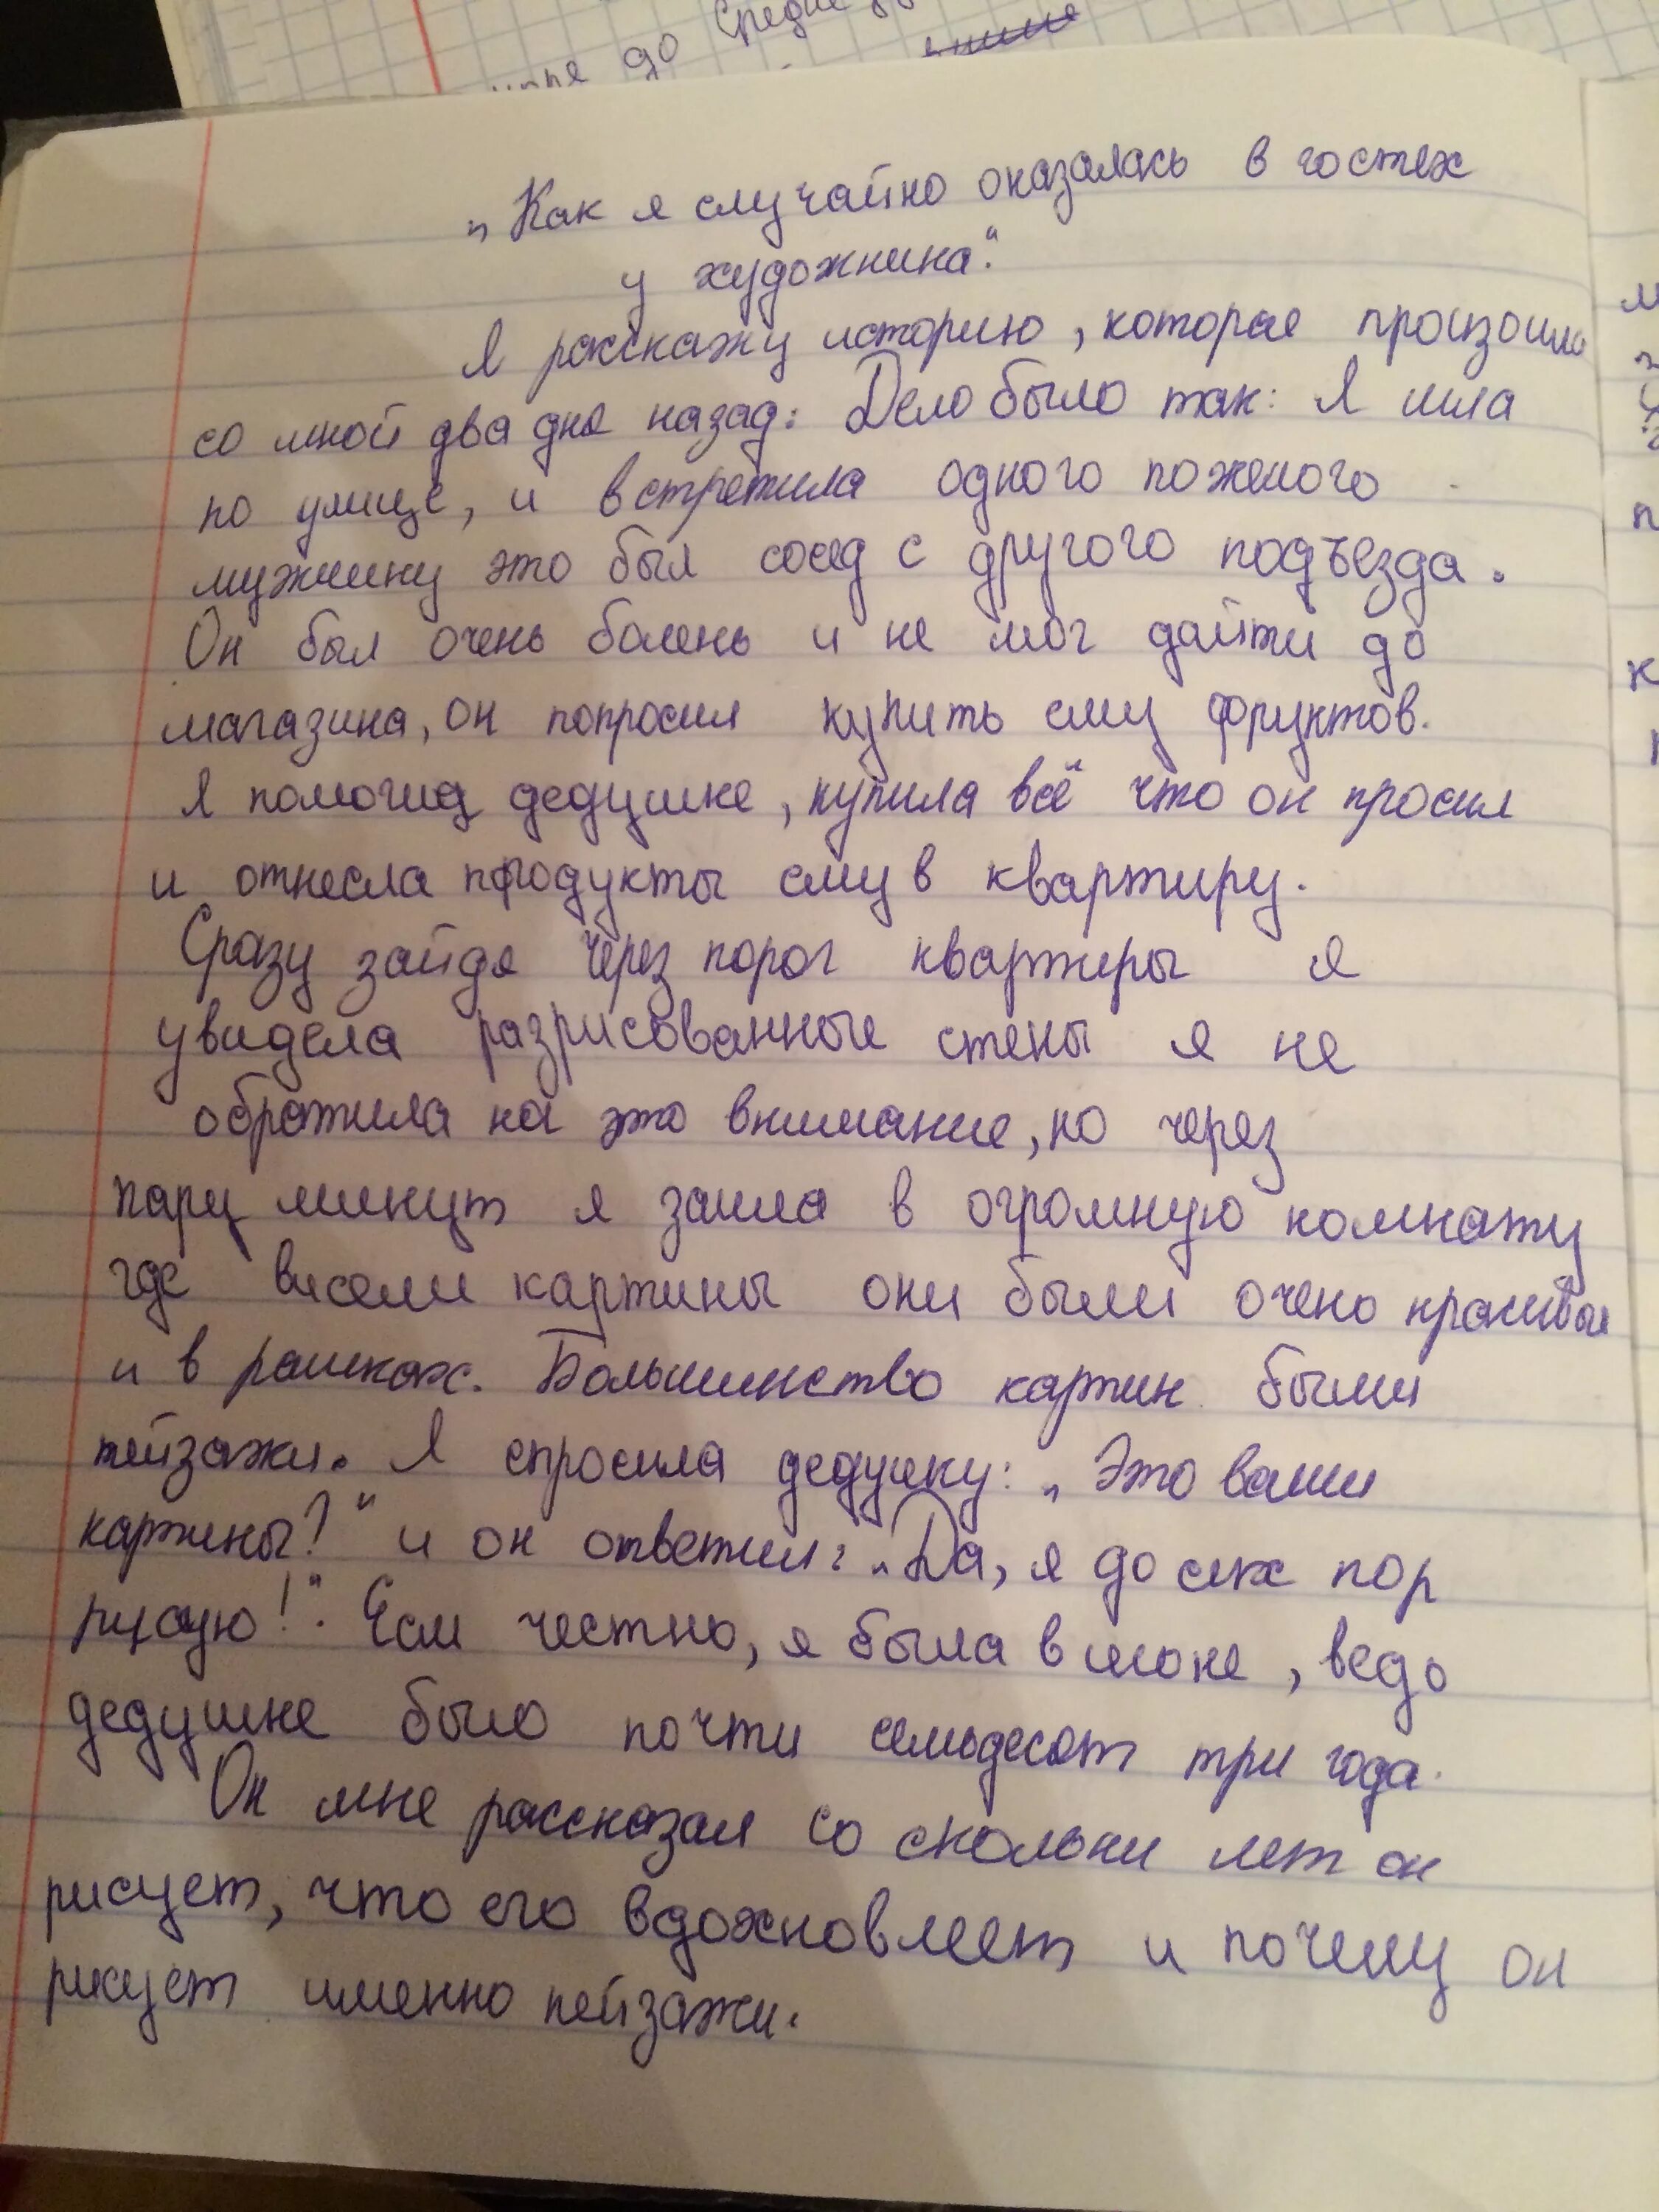 до Средне
„Как я случайно оказалась в гостех
у художника“.
Я расскажу историю, которая произошла
со мной два дня назад: Дело было так: Я шла
по улице, и встретила одного пожелого
мужчину это был сосед с другого подъезда.
Он был очень болень и не мог дайти до
магазина, он попросил купить ему фруктов.
Я помогла дедушке, купила всё что он просил
и отнесла продукты ему в квартиру.
Сразу зайдя через порог квартиры я
увидела разрисованные стены я не
обратила на это внимание, но через
пару минут я зашла в огромную комнату
где висели картины они были очень красивые
и в рамках. Большинство картин были
пейзажи. Я спросила дедушку: „Это ваши
картины?“ и он ответил: „Да, я до сех пор
рисую!“. Если честно, я была в шоке, ведь
дедушке было почти семьдесят три года.
Он мне рассказал со скольки лет он
рисует, что его вдохновлеет и почему он
рисует именно пейзажи.